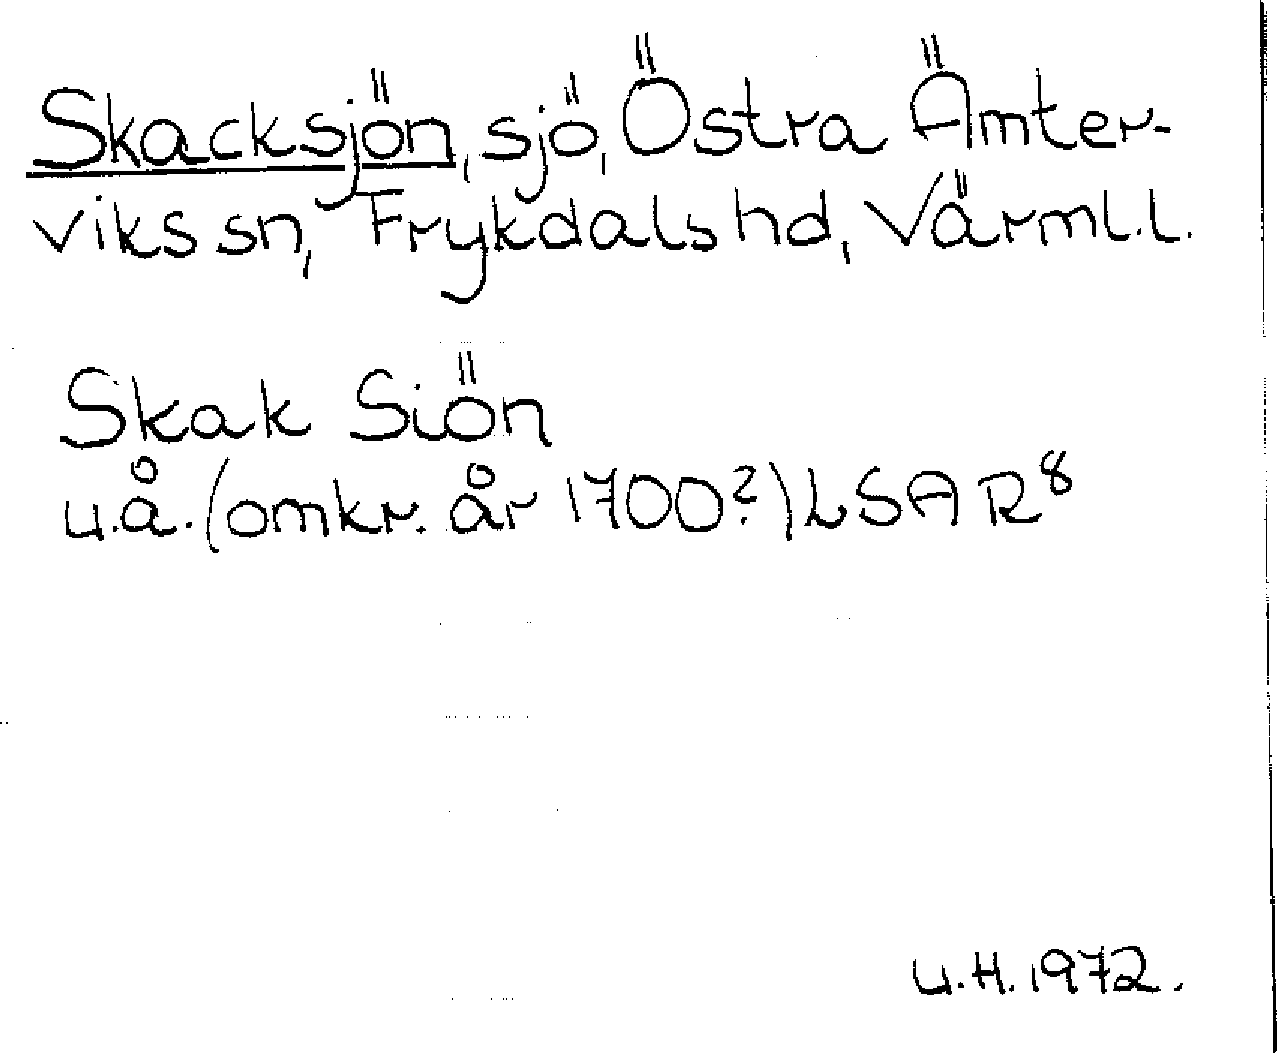 Skacksjön, sjö, Östra Ämter-
viks sn, Frykdals hd, Värml. l.
Skak Siön
u.å. (omkr. år 1700?) LSA R8
U.H. 1972.